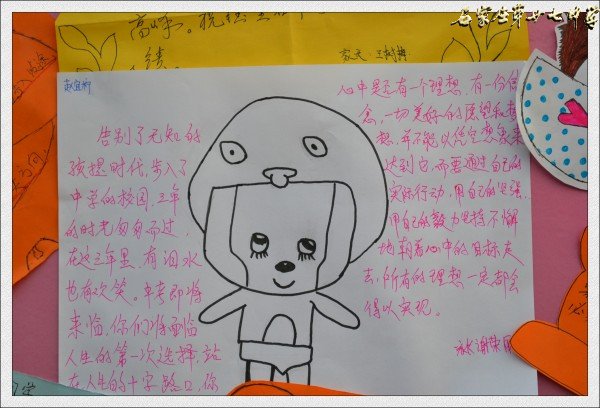 石家庄第四十七中学
高峰。祝
绩。
家长
赵宜轩
告别了无知的
孩提时代,步入了
中学的校园,三年
的时光匆匆而过,
在这三年里,有泪水
也有欢笑。中考即将
来临,你们将面临
人生的第一次选择,站
在人生的十字路口,你
心中是否有一个理想,有一份信
念,一切美好的愿望和梦
想,并不能以凭空想象来
达到它,而要通过自己的
实际行动,用自己的坚强,
用自己的毅力坚持不懈
地朝着心中的目标走
去,所有的理想一定都会
得以实现。
家长:谢荣